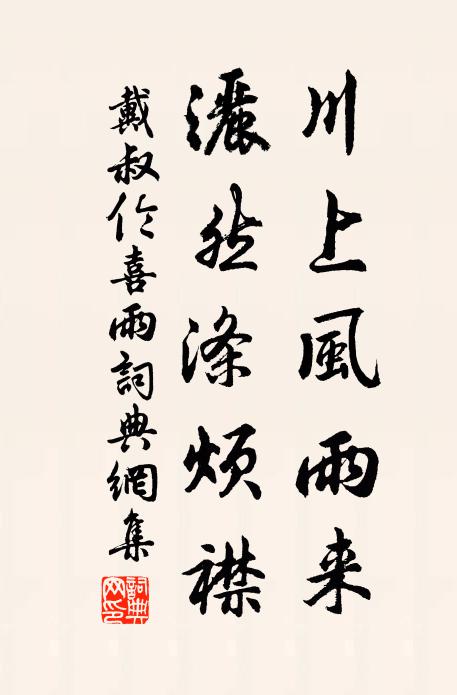 川上風雨来
灑然滌煩襟
戴叔伦喜雨詞典網集
詞典网印